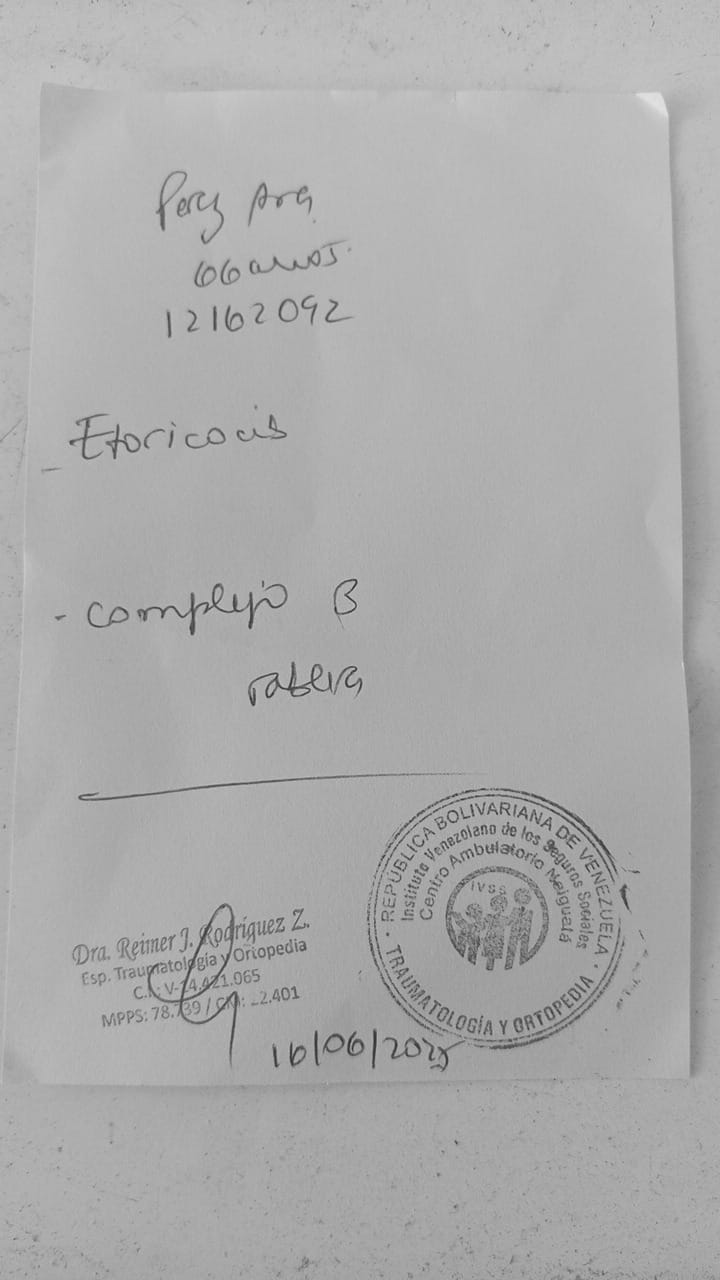 Perez Ana
66 años.
12162092
- Etoricoxib
- Complejo B
Dra. Reimer J. Rodríguez Z.
Esp. Traumatología y Ortopedia
C.I: V-14.421.065
MPPS: 78.739 / CM: 2.401
REPÚBLICA BOLIVARIANA DE VENEZUELA
Instituto Venezolano de los Seguros Sociales
Centro Ambulatorio Naiguatá
IVSS
TRAUMATOLOGÍA Y ORTOPEDIA
16/06/2025